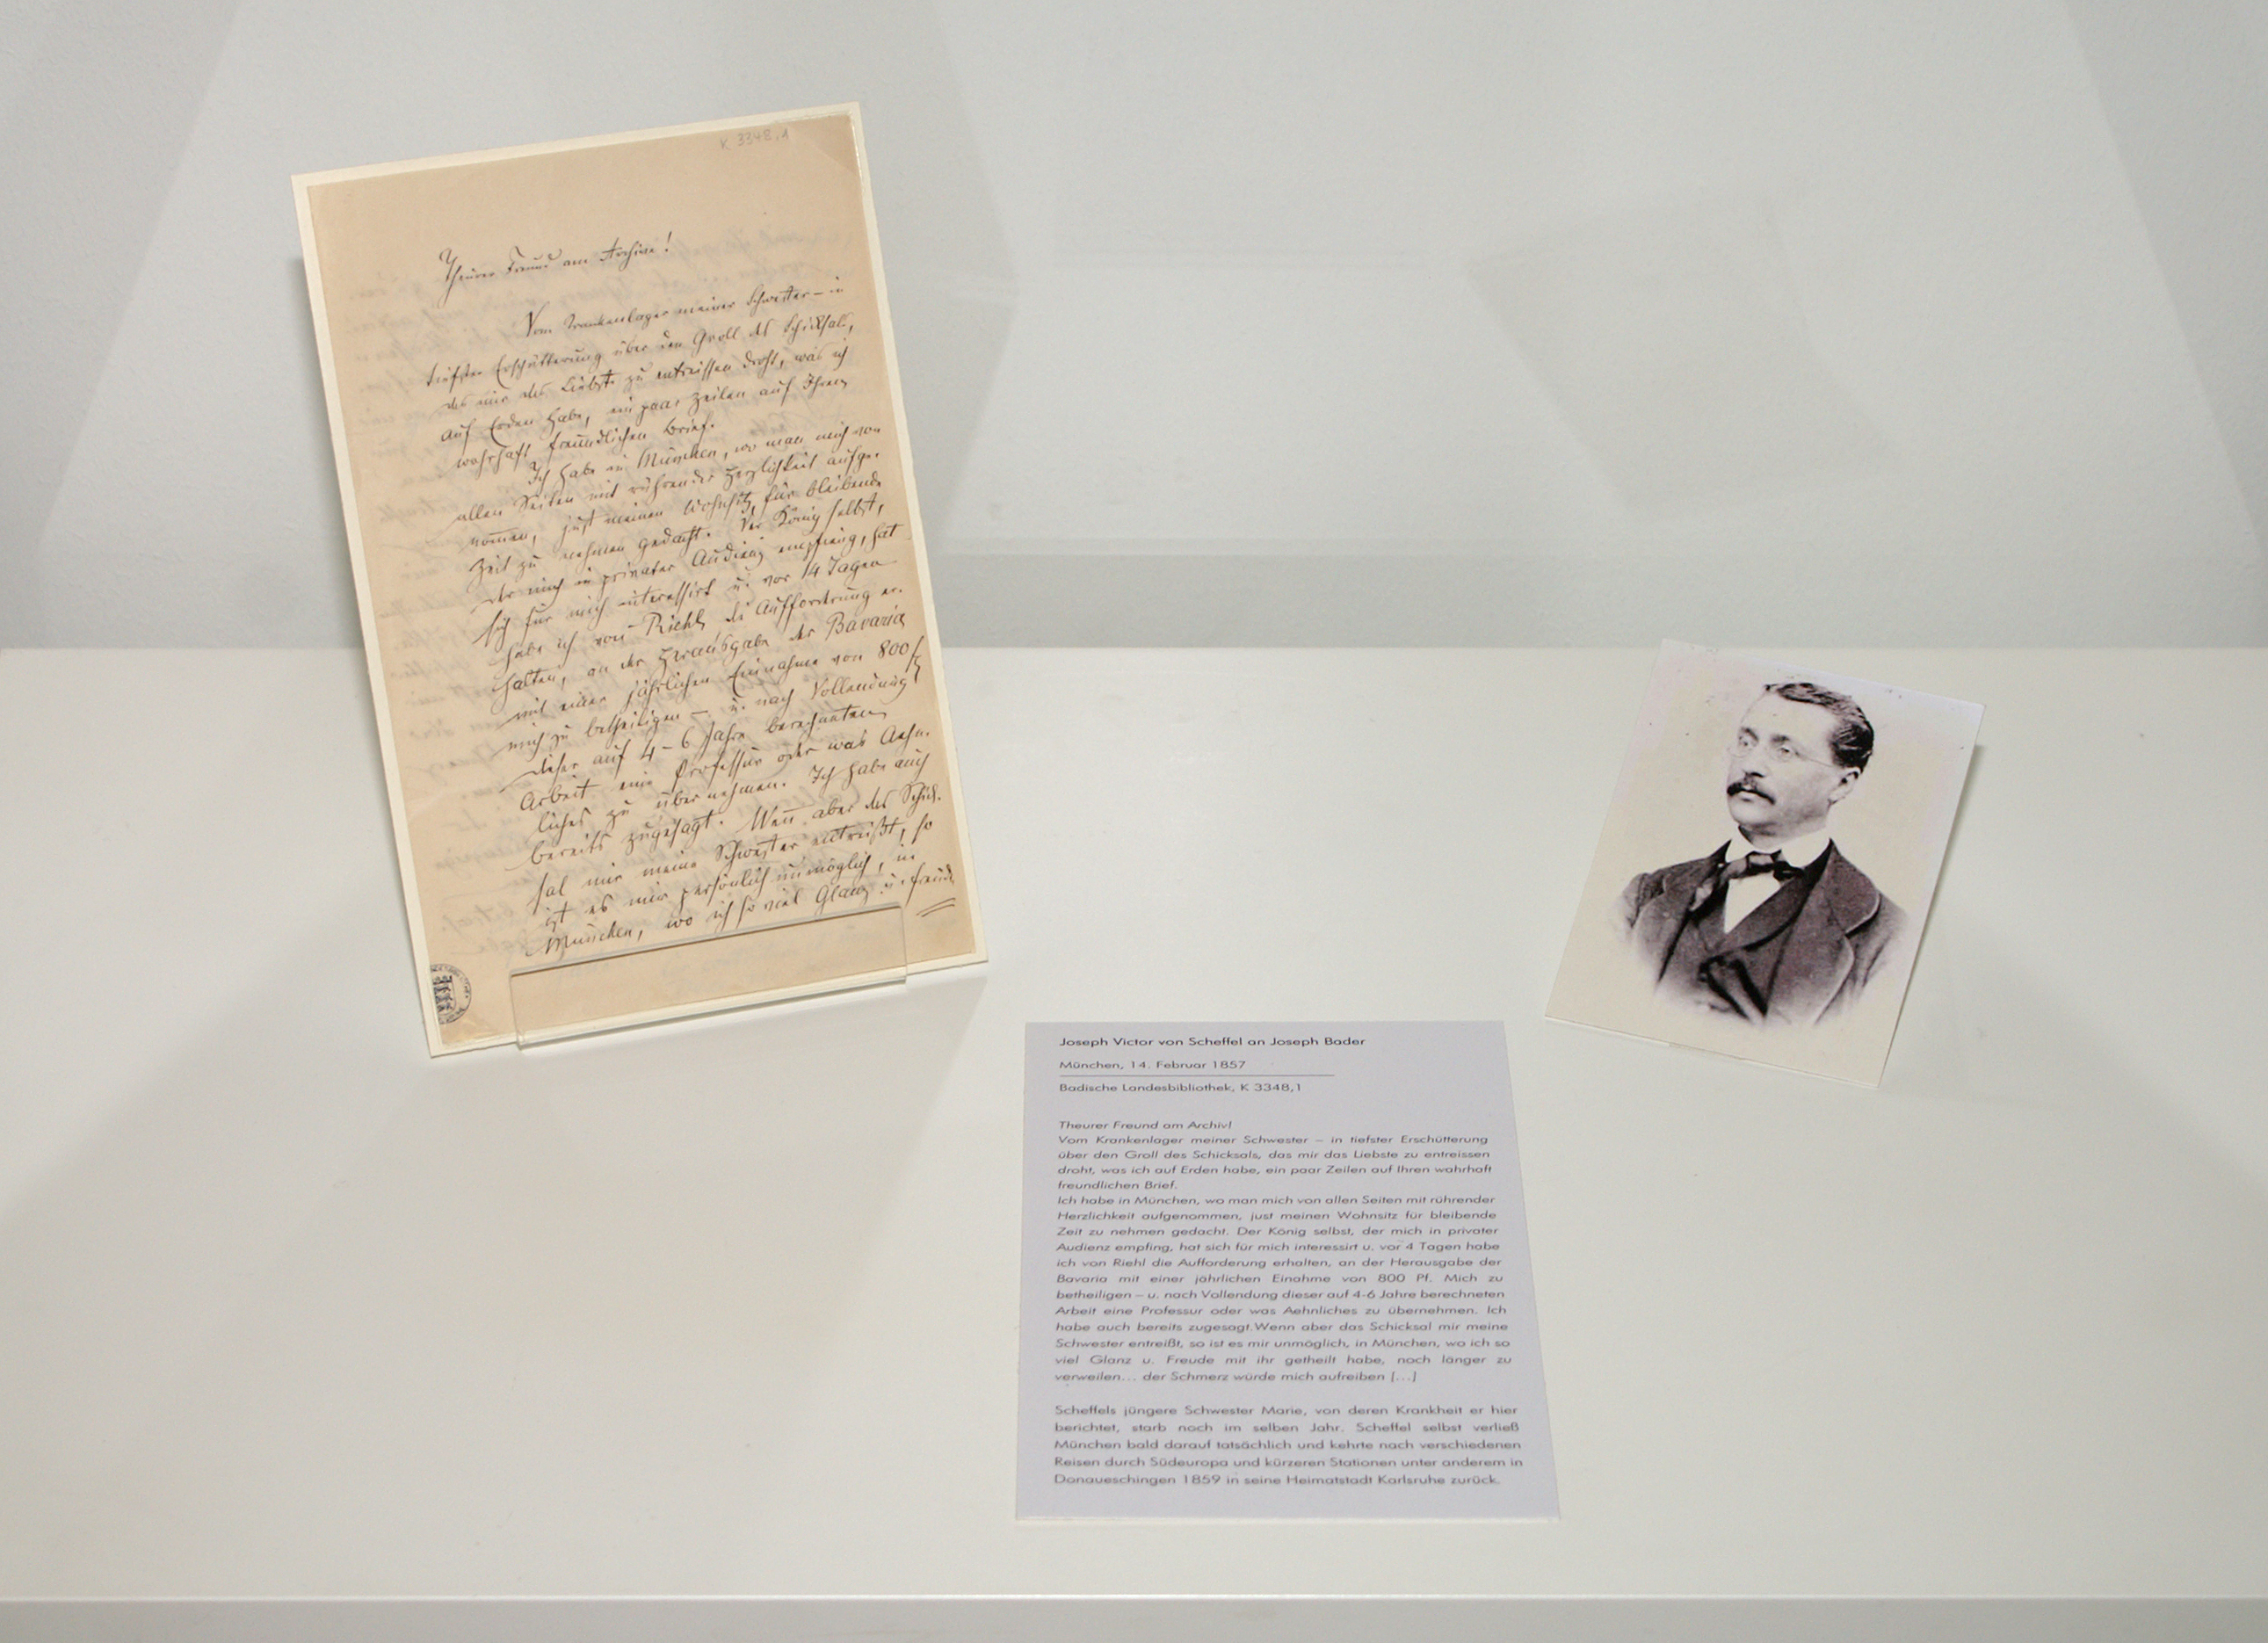 K 3348,1
Theurer Freund am Archive!
Vom Krankenlager meiner Schwester – in
tiefster Erschütterung über den Groll des Schicksals,
das mir das Liebste zu entreissen droht, was ich
auf Erden habe, ein paar Zeilen auf Ihren
wahrhaft freundlichen Brief.
Ich habe in München, wo man mich von
allen Seiten mit rührender Herzlichkeit aufge-
nommen, just meinen Wohnsitz für bleibende
Zeit zu nehmen gedacht. Der König selbst,
der mich in privater Audienz empfieng, hat
sich für mich interessirt u. vor 14 Tagen
habe ich von Riehl die Aufforderung er-
halten, an der Herausgabe der Bavaria
mit einer jährlichen Einnahme von 800 fl
mich zu betheiligen – u. nach Vollendung
dieser auf 4-6 Jahre berechneten
Arbeit eine Professur oder was Aehn-
liches zu übernehmen. Ich habe auch
bereits zugesagt. Wenn aber das Schick-
sal mir meine Schwester entreißt, so
ist es mir persönlich unmöglich, in
München, wo ich so viel Glanz u. Freude
Joseph Victor von Scheffel an Joseph Bader
München, 14. Februar 1857
Badische Landesbibliothek, K 3348,1
Theurer Freund am Archiv!
Vom Krankenlager meiner Schwester – in tiefster Erschütterung
über den Groll des Schicksals, das mir das Liebste zu entreissen
droht, was ich auf Erden habe, ein paar Zeilen auf Ihren wahrhaft
freundlichen Brief.
Ich habe in München, wo man mich von allen Seiten mit rührender
Herzlichkeit aufgenommen, just meinen Wohnsitz für bleibende
Zeit zu nehmen gedacht. Der König selbst, der mich in privater
Audienz empfing, hat sich für mich interessirt u. vor 4 Tagen habe
ich von Riehl die Aufforderung erhalten, an der Herausgabe der
Bavaria mit einer jährlichen Einahme von 800 Pf. Mich zu
betheiligen – u. nach Vollendung dieser auf 4-6 Jahre berechneten
Arbeit eine Professur oder was Aehnliches zu übernehmen. Ich
habe auch bereits zugesagt.Wenn aber das Schicksal mir meine
Schwester entreißt, so ist es mir unmöglich, in München, wo ich so
viel Glanz u. Freude mit ihr getheilt habe, noch länger zu
verweilen... der Schmerz würde mich aufreiben [...]
Scheffels jüngere Schwester Marie, von deren Krankheit er hier
berichtet, starb noch im selben Jahr. Scheffel selbst verließ
München bald darauf tatsächlich und kehrte nach verschiedenen
Reisen durch Südeuropa und kürzeren Stationen unter anderem in
Donaueschingen 1859 in seine Heimatstadt Karlsruhe zurück.